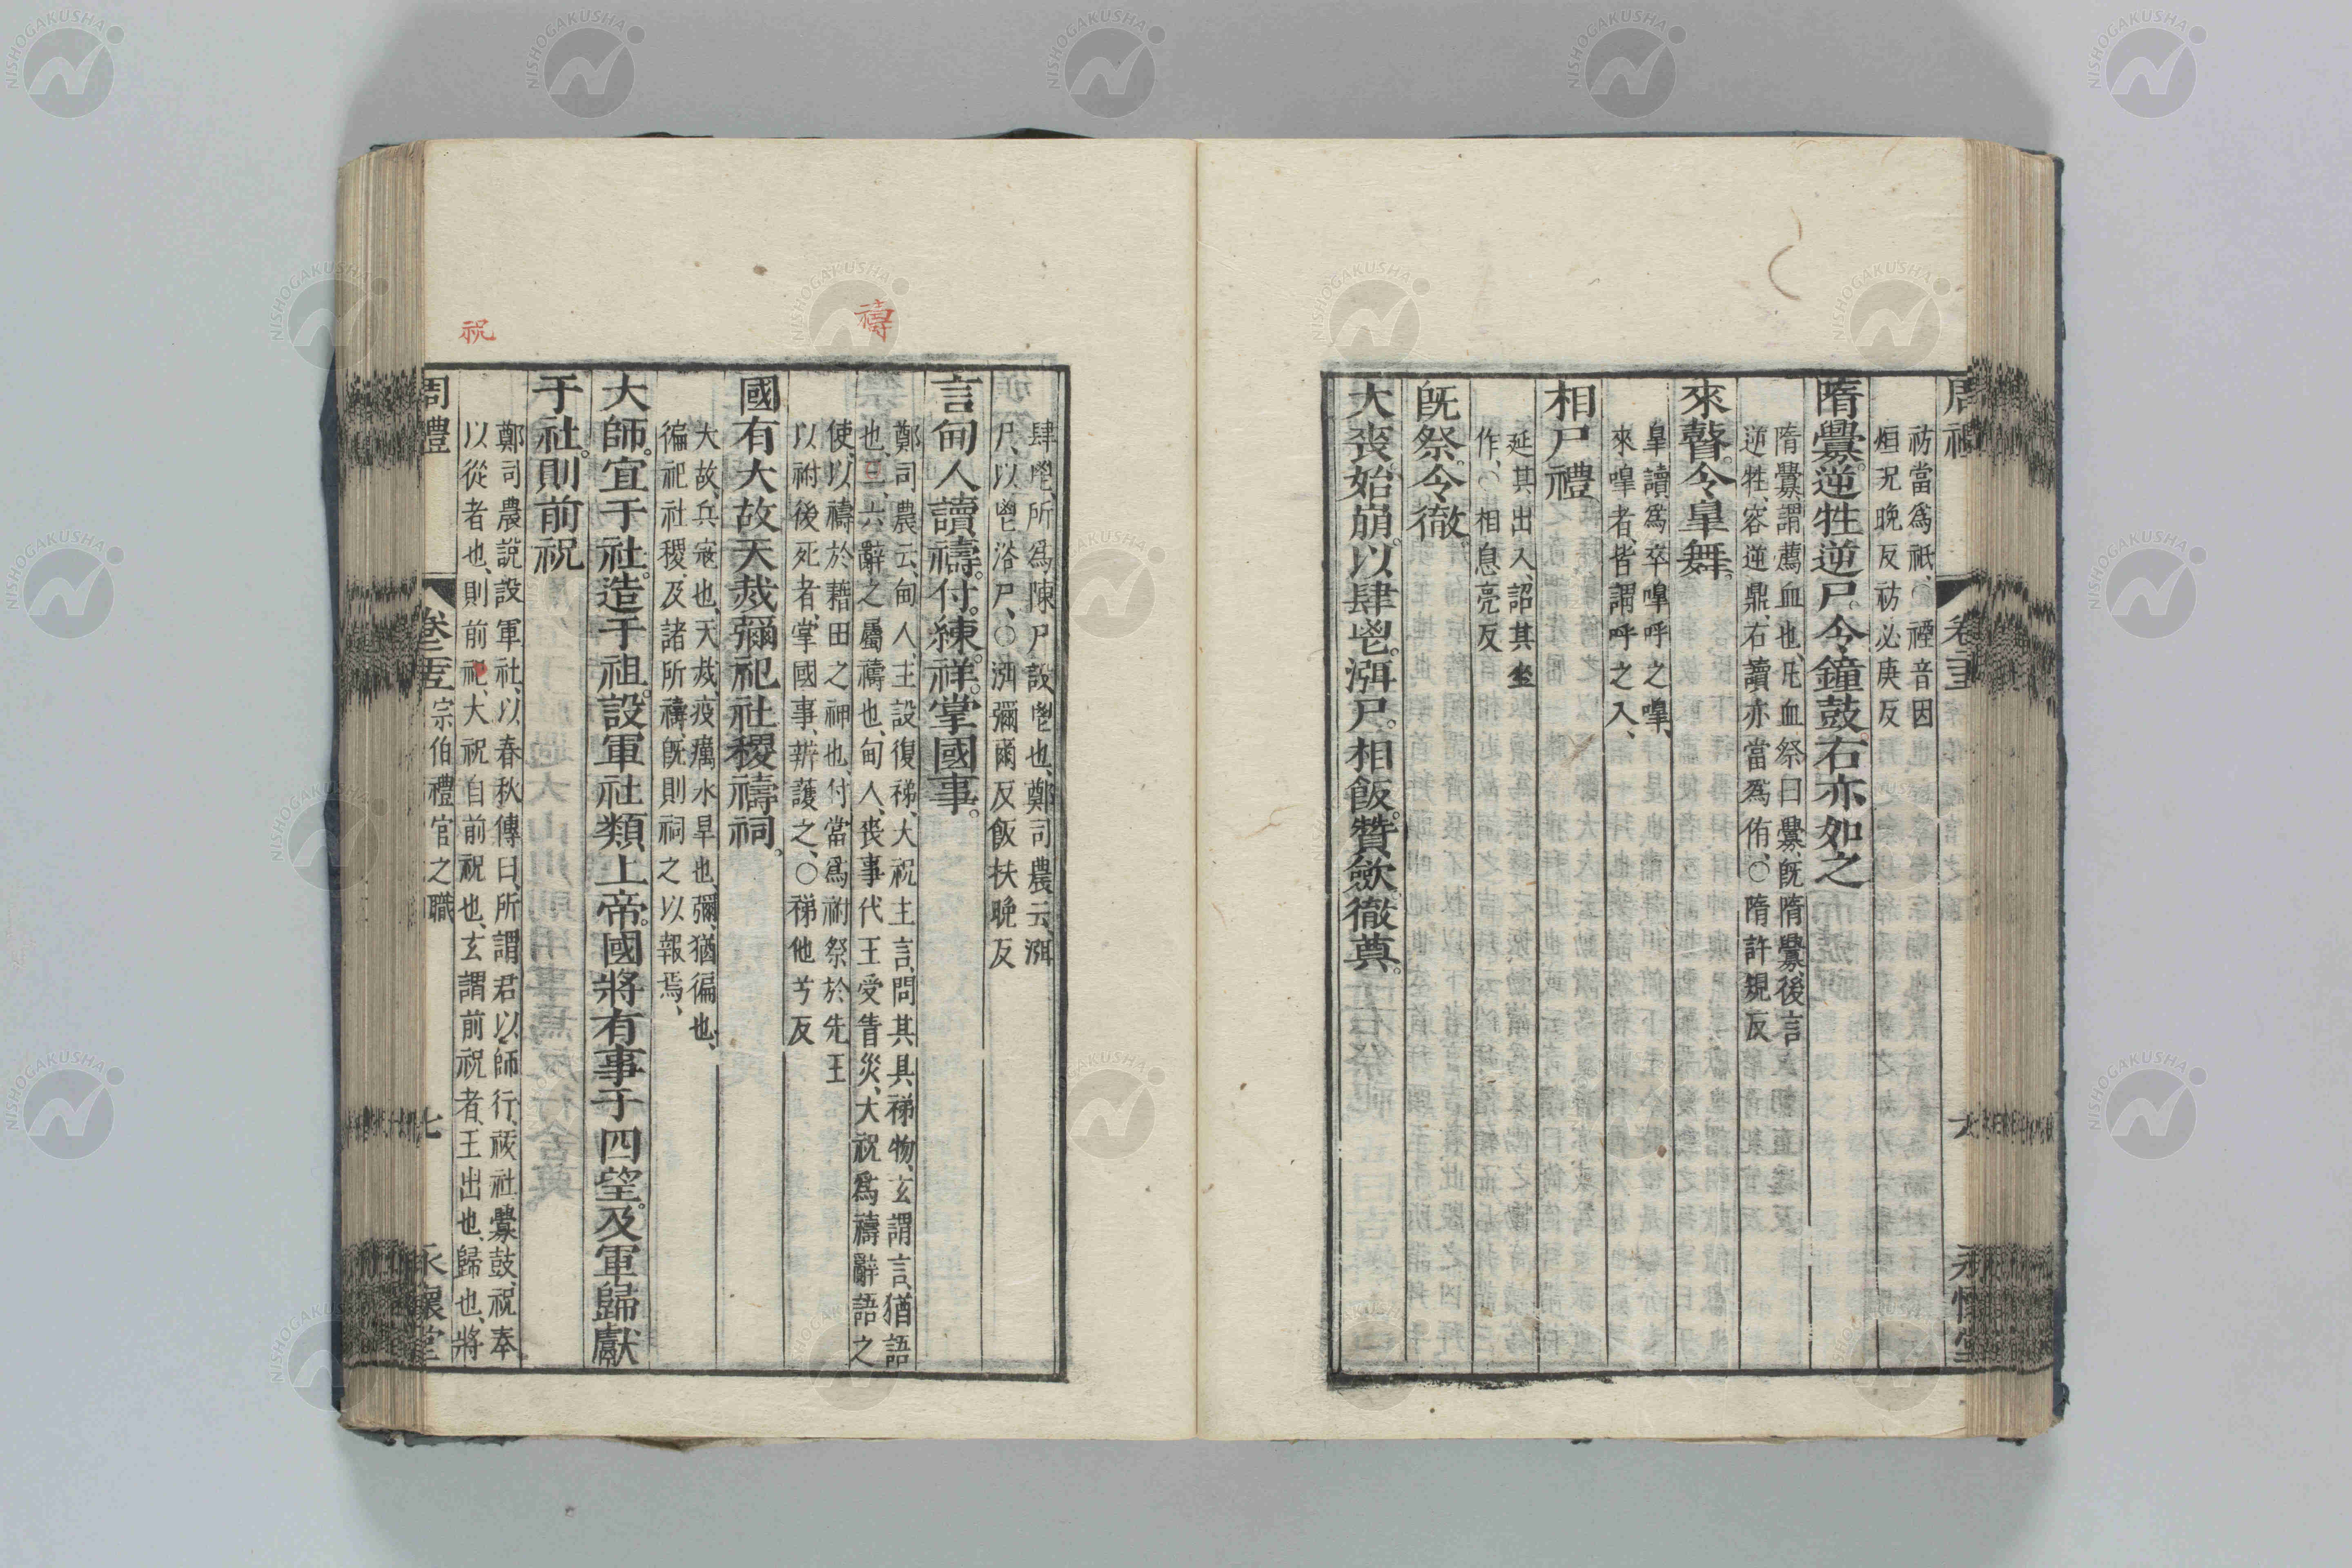 周禮 卷二十五 六 永懷堂
祊當爲祇、○禋音因
烜況晚反祊必庚反
隋釁。逆牲逆尸。令鐘鼓。右亦如之
隋釁、謂薦血也、凡血祭曰釁、旣隋釁、後言
逆牲、容逆鼎、右讀亦當爲侑、○隋許規反
來瞽。令臯舞。
臯讀爲卒嘷呼之嘷、
來嘷者、皆謂呼之入、
相尸禮
延其出入、詔其坐
作、○相息亮反
旣祭。令徹。
大喪。始崩。以肆鬯。渳尸。相飯。贊斂。徹奠。
肆鬯、所爲陳尸設鬯也、鄭司農云、渳
尸、以鬯浴尸、○渳彌爾反飯扶晚反
言甸人讀禱。付。練。祥。掌國事。
鄭司農云、甸人、主設復梯、大祝主言、問其具梯物、玄謂言、猶語
也、禱、六辭之屬禱也、甸人、喪事代王受眚烖、大祝爲禱辭語之
使、以禱於藉田之神也、付、當爲祔祭於先王
以祔後死者、掌國事、辨護之、○梯他兮反
國有大故天烖。彌祀社稷禱祠。
大故、兵寇也、天烖、疫癘水旱也、彌、猶徧也、
徧祀社稷及諸所禱、旣則祠之以報焉、
大師。宜于社。造于祖。設軍社。類上帝。國將有事于四望。及軍歸獻
于社。則前祝
鄭司農說設軍社、以春秋傳曰、所謂君以師行、祓社釁鼓、祝奉
以從者也、則前祝、大祝自前祝也、玄謂前祝者、王出也、歸也、將
周禮 卷二十五 宗伯禮官之職 七 永懷堂
禱
祝
NISHOGAKUSHA